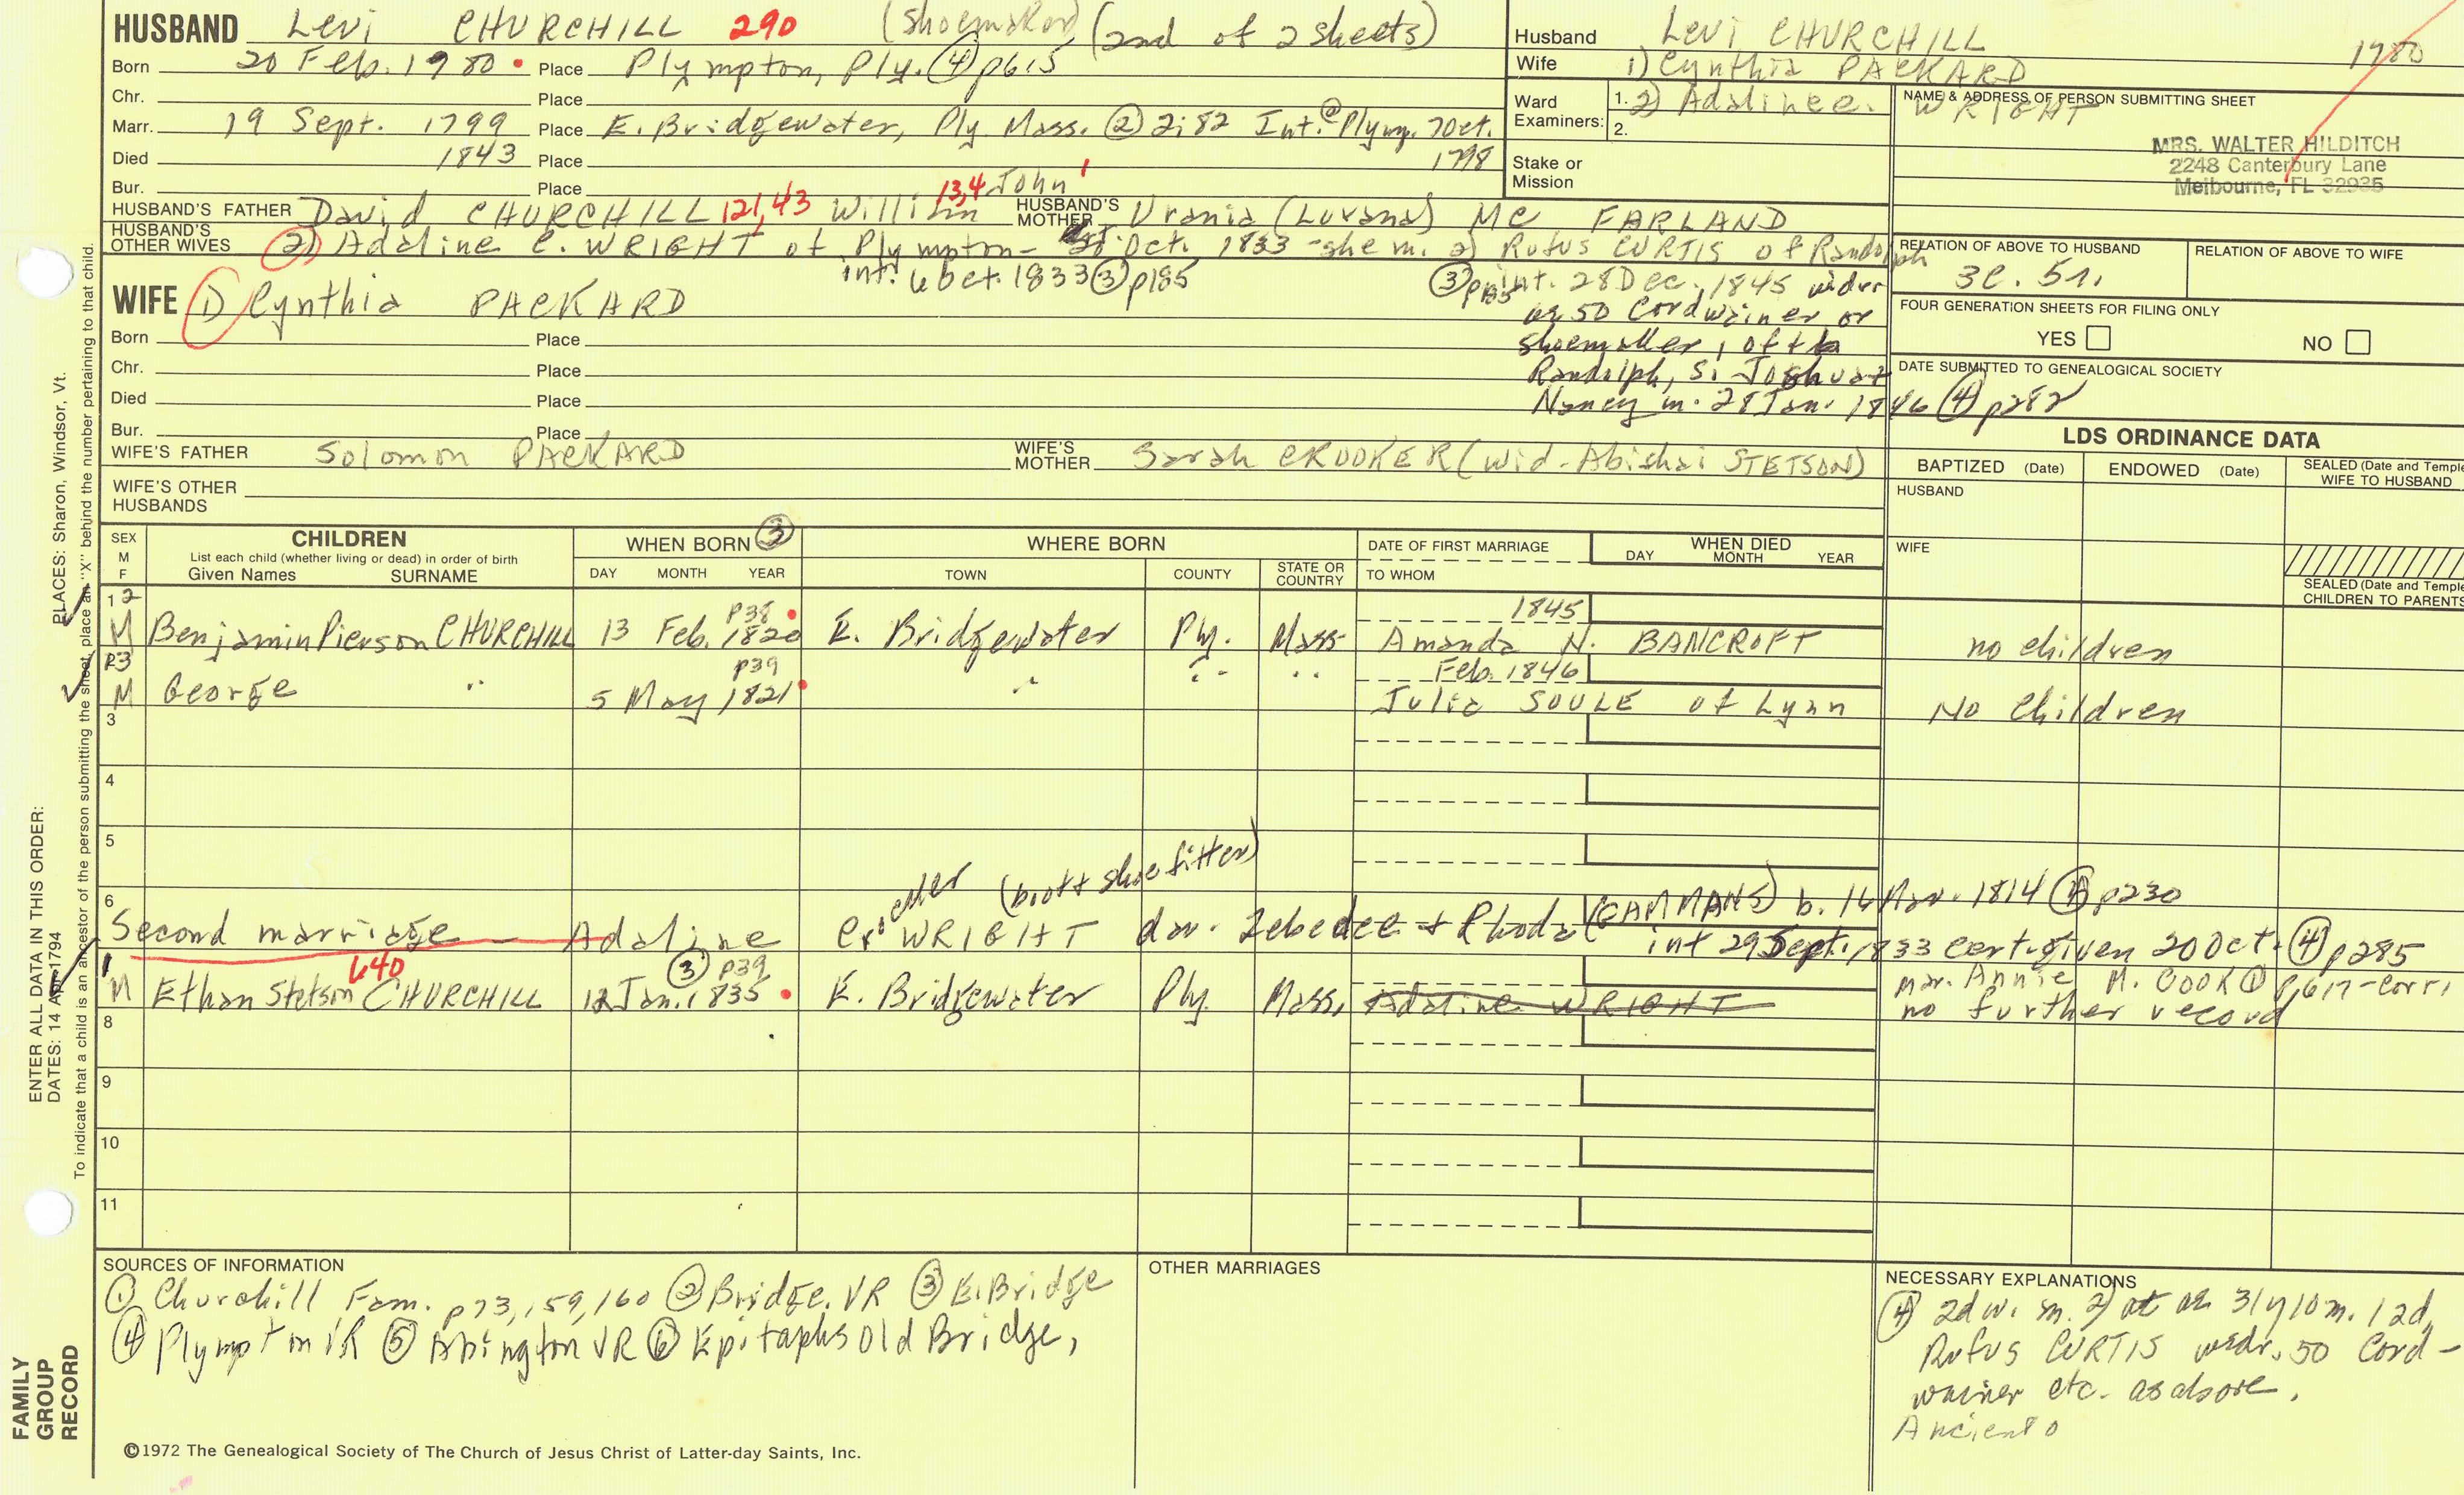 HUSBAND Levi CHURCHILL 290 (Shoemaker) (2nd of 2 sheets)
Born 20 Feb. 1980 Place Plympton, Ply. ④ p615
Chr. Place
Marr. 19 Sept. 1799 Place E. Bridgewater, Ply Mass. ② 2;82 Int. @ Plymp. 7 Oct. 1798
Died 1843 Place
Bur. Place
HUSBAND'S FATHER David CHURCHILL 121,43 William 13,4 John 1 HUSBAND'S MOTHER Urania (Lurana) MC FARLAND
HUSBAND'S OTHER WIVES 2) Adaline C. WRIGHT of Plympton - Oct. 1833 - she m. 2) Rufus CURTIS of Randolph
int. 6 Oct. 1833 ③ p185
③ p185 int. 28 Dec. 1845 widr
as 50 Cordwainer or
shoemaker, of
Randolph, S. Joshua +
Nancy m. 28 Jan. 1846 ④ p282
WIFE 1) Cynthia PACKARD
Born Place
Chr. Place
Died Place
Bur. Place
WIFE'S FATHER Solomon PACKARD WIFE'S MOTHER Sarah CROOKER (wid. Abishai STETSON)
WIFE'S OTHER HUSBANDS
Husband Levi CHURCHILL 1780
Wife 1) Cynthia PACKARD
2) Adalinee. WRIGHT
Ward Examiners: 1. 2.
Stake or Mission
NAME & ADDRESS OF PERSON SUBMITTING SHEET
MRS. WALTER HILDITCH
2248 Canterbury Lane
Melbourne, FL 32935
RELATION OF ABOVE TO HUSBAND RELATION OF ABOVE TO WIFE
3C. 5r.
FOUR GENERATION SHEETS FOR FILING ONLY
YES NO
DATE SUBMITTED TO GENEALOGICAL SOCIETY
LDS ORDINANCE DATA
BAPTIZED (Date) ENDOWED (Date) SEALED (Date and Temple WIFE TO HUSBAND
HUSBAND
WIFE
SEALED (Date and Temple CHILDREN TO PARENTS
SEX M F
CHILDREN
List each child (whether living or dead) in order of birth
Given Names SURNAME
WHEN BORN ③
DAY MONTH YEAR
WHERE BORN
TOWN COUNTY STATE OR COUNTRY
DATE OF FIRST MARRIAGE
TO WHOM
WHEN DIED
DAY MONTH YEAR
1 2 p38 1845
M Benjamin Pierson CHURCHILL 13 Feb. 1820 E. Bridgewater Ply. Mass. Amanda N. BANCROFT no children
3 p39 Feb. 1846
M George " 5 May 1821 " " " Julia SOULE of Lynn No Children
3
4
5
6
Second marriage - Adaline WRIGHT (boot & shoe fitter) dau. Zebedee + Rhoda (GAMMANS) b. 16 Nov. 1814 ④ p230
int 29 Sept. 1833 cert. given 20 Oct. ④ p285
1 640 ③ p39
M Ethan Stetson CHURCHILL 12 Jan. 1835 E. Bridgewater Ply. Mass. Adaline WRIGHT mar. Annie M. COOK ① p617-corr.
no further record
8
9
10
11
SOURCES OF INFORMATION
① Churchill Fam. p73,159,160 ② Bridge. VR ③ E. Bridge
④ Plympton VR ⑤ Abington VR ⑥ Epitaphs Old Bridge,
OTHER MARRIAGES
NECESSARY EXPLANATIONS
④ 2d w. m. 2) at ae 31y 10m. 12d.
Rufus CURTIS widr. 50 Cord-
wainer etc. as above.
©1972 The Genealogical Society of The Church of Jesus Christ of Latter-day Saints, Inc.
FAMILY GROUP RECORD
ENTER ALL DATA IN THIS ORDER:
DATES: 14 Apr 1794 PLACES: Sharon, Windsor, Vt.
To indicate that a child is an ancestor of the person submitting the sheet, place an "X" behind the number pertaining to that child.